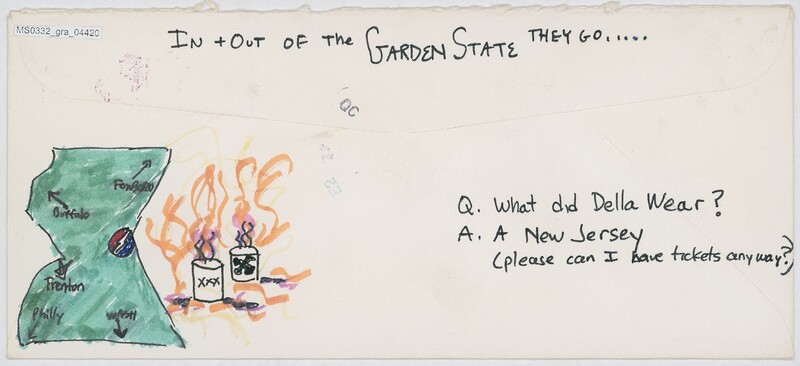 MS0332_gra_04420
IN + OUT OF the GARDEN STATE THEY GO.....
QC
FOXBORO
Buffalo
Trenton
Philly
WASH
XXX
Q. What did Della Wear?
A. A New Jersey
(please can I have tickets anyway?)